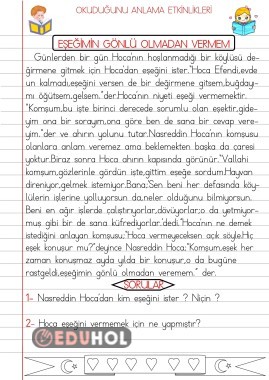 OKUDUĞUNU ANLAMA ETKİNLİKLERİ
EŞEĞİMİN GÖNLÜ OLMADAN VERMEM
Günlerden bir gün Hoca'nın hoşlanmadığı bir köylüsü de-
ğirmene gitmek için Hoca'dan eşeğini ister."Hoca Efendi,evde
un kalmadı,eşeğini versen de bir değirmene gitsem,buğday-
mı öğütsem,gelsem."der.Hoca'nın niyeti eşeği vermemektir.
"Komşum,bu işte birinci derecede sorumlu olan eşektir,gide-
yim ona bir sorayım,ona göre ben de sana bir cevap vere-
yim."der ve ahırın yolunu tutar.Nasreddin Hoca'nın komşusu
olanlara anlam veremez ama beklemekten başka da çaresi
yoktur.Biraz sonra Hoca ahırın kapısında görünür."Vallahi
komşum,gözlerinle gördün işte,gittim eşeğe sordum.Hayvan
direniyor,gelmek istemiyor.Bana;'Sen beni her defasında köy-
lülerin işlerine yolluyorsun da,neler olduğunu bilmiyorsun.
Beni en ağır işlerde çalıştırıyorlar,dövüyorlar;o da yetmiyor-
muş gibi bir de sana küfrediyorlar.'dedi."Hoca'nın ne demek
istediğini anlayan komşusu;"Hoca vermeyeceksen açık söyle,Hiç
eşek konuşur mu?"deyince Nasreddin Hoca;"Komşum,eşek her
zaman konuşmaz ayda yılda bir konuşur,o da bugüne
rastgeldi,eşeğimin gönlü olmadan veremem." der.
SORULAR
1- Nasreddin Hoca'dan kim eşeğini ister ? Niçin ?
EDUHOL
2- Hoca eşeğini vermemek için ne yapmıştır?